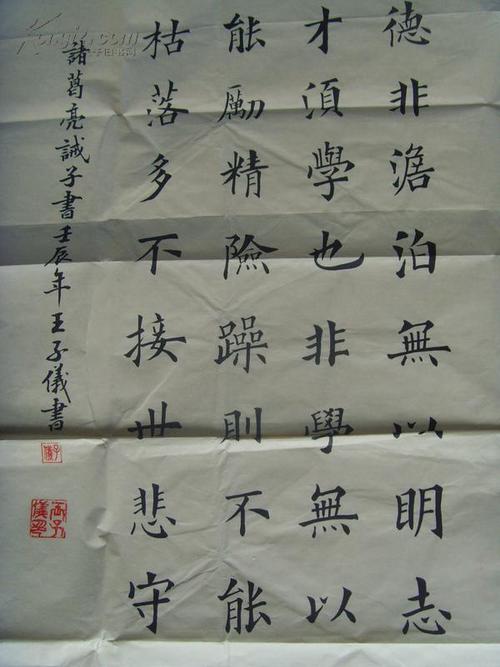 德非澹泊無以明志
才須學也非學無以
能勵精險躁則不能
枯落多不接世悲守
諸葛亮誡子書壬辰年王子儀書